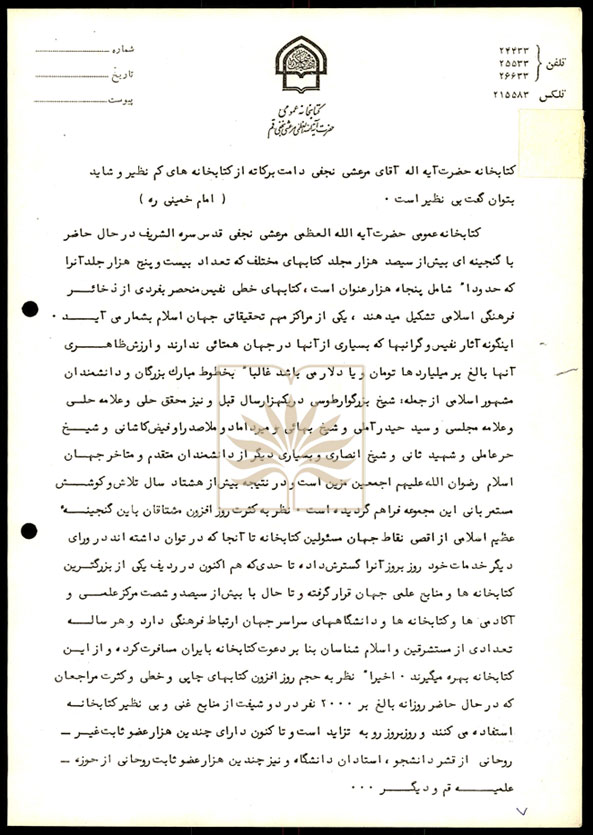 شماره
تاریخ
پیوست
کتابخانه عمومی
حضرت آیة الله العظمی مرعشی نجفی قم
تلفن
۲۴۴۳۳
۲۵۵۳۳
۲۶۶۳۳
تلکس ۲۱۵۵۸۳
کتابخانه حضرت آیه اله آقای مرعشی نجفی دامت برکاته از کتابخانه های کم نظیر و شاید
بتوان گفت بی نظیر است ۰ ( امام خمینی ره )
کتابخانه عمومی حضرت آیه الله العظمی مرعشی نجفی قدس سره الشریف در حال حاضر
با گنجینه ای بیش از سیصد هزار مجلد کتابهای مختلف که تعداد بیست و پنج هزار جلد آنرا
که حدودا" شامل پنجاه هزار عنوان است ، کتابهای خطی نفیس منحصر بفردی از ذخائر
فرهنگی اسلامی تشکیل میدهند ، یکی از مراکز مهم تحقیقاتی جهان اسلام بشمار می آیـــد ۰
اینگونه آثار نفیس و گرانبها که بسیاری از آنها در جهان همتائی ندارند و ارزش ظاهـــری
آنها بالغ بر میلیاردها تومان و یا دلار می باشد غالبا" بخطوط مبارک بزرگان و دانشمندان
مشهور اسلامی از جمله: شیخ بزرگوار طوسی در یکهزار سال قبل و نیز محقق حلی و علامه حلــی
و علامه مجلسی و سید حیدر آملی و شیخ بهائی و میرداماد و ملاصدرا و فیض کاشانی و شیـــخ
حر عاملی و شهید ثانی و شیخ انصاری و بسیاری دیگر از دانشمندان متقدم و متاخر جهـــان
اسلام رضوان الله علیهم اجمعین مزین است و در نتیجه بیش از هشتاد سال تلاش و کوشش
مستمر بانی این مجموعه فراهم گردیده است ۰ نظر به کثرت روز افزون مشتاقان باین گنجینـــه
عظیم اسلامی از اقصی نقاط جهان مسئولین کتابخانه تا آنجا که در توان داشته اند در ورای
دیگر خدمات خود روز بروز آنرا گسترش داده تا حدی که هم اکنون در ردیف یکی از بزرگتریـن
کتابخانه ها و منابع علمی جهان قرار گرفته و تا حال با بیش از سیصد و شصت مرکز علمـــی و
آکادمی ها و کتابخانه ها و دانشگاههای سراسر جهان ارتباط فرهنگی دارد و هر سالـــه
تعدادی از مستشرقین و اسلام شناسان بنا بر دعوت کتابخانه بایران مسافرت کرده و از ایـن
کتابخانه بهره میگیرند ۰ اخیرا" نظر به حجم روز افزون کتابهای چاپی و خطی و کثرت مراجعان
که در حال حاضر روزانه بالغ بر ۲۰۰۰ نفر در دو شیفت از منابع غنی و بی نظیر کتابخانـــه
استفاده می کنند و روز بروز رو به تزاید است و تا کنون دارای چندین هزار عضو ثابت غیر ــ
روحانی از قشر دانشجو ، استادان دانشگاه و نیز چندین هزار عضو ثابت روحانی از حوزه ــ
علمیـــه قم و دیگـــر ۰۰۰
۷